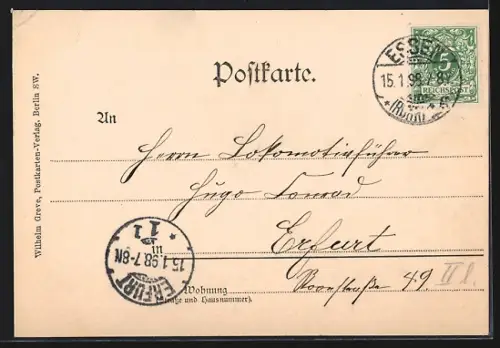 Postkarte.
ESSEN
15.1.98.7-8
(RUHR)
5
REICHSPOST
An
Herrn Lokomotivführer
Hugo Conrad
in
Erfurt
Roonstraße 49
II l.
Wohnung
(Straße und Hausnummer).
ERFURT
15.1.98.7-8N.
* 11 *
Wilhelm Greve, Postkarten-Verlag, Berlin SW.